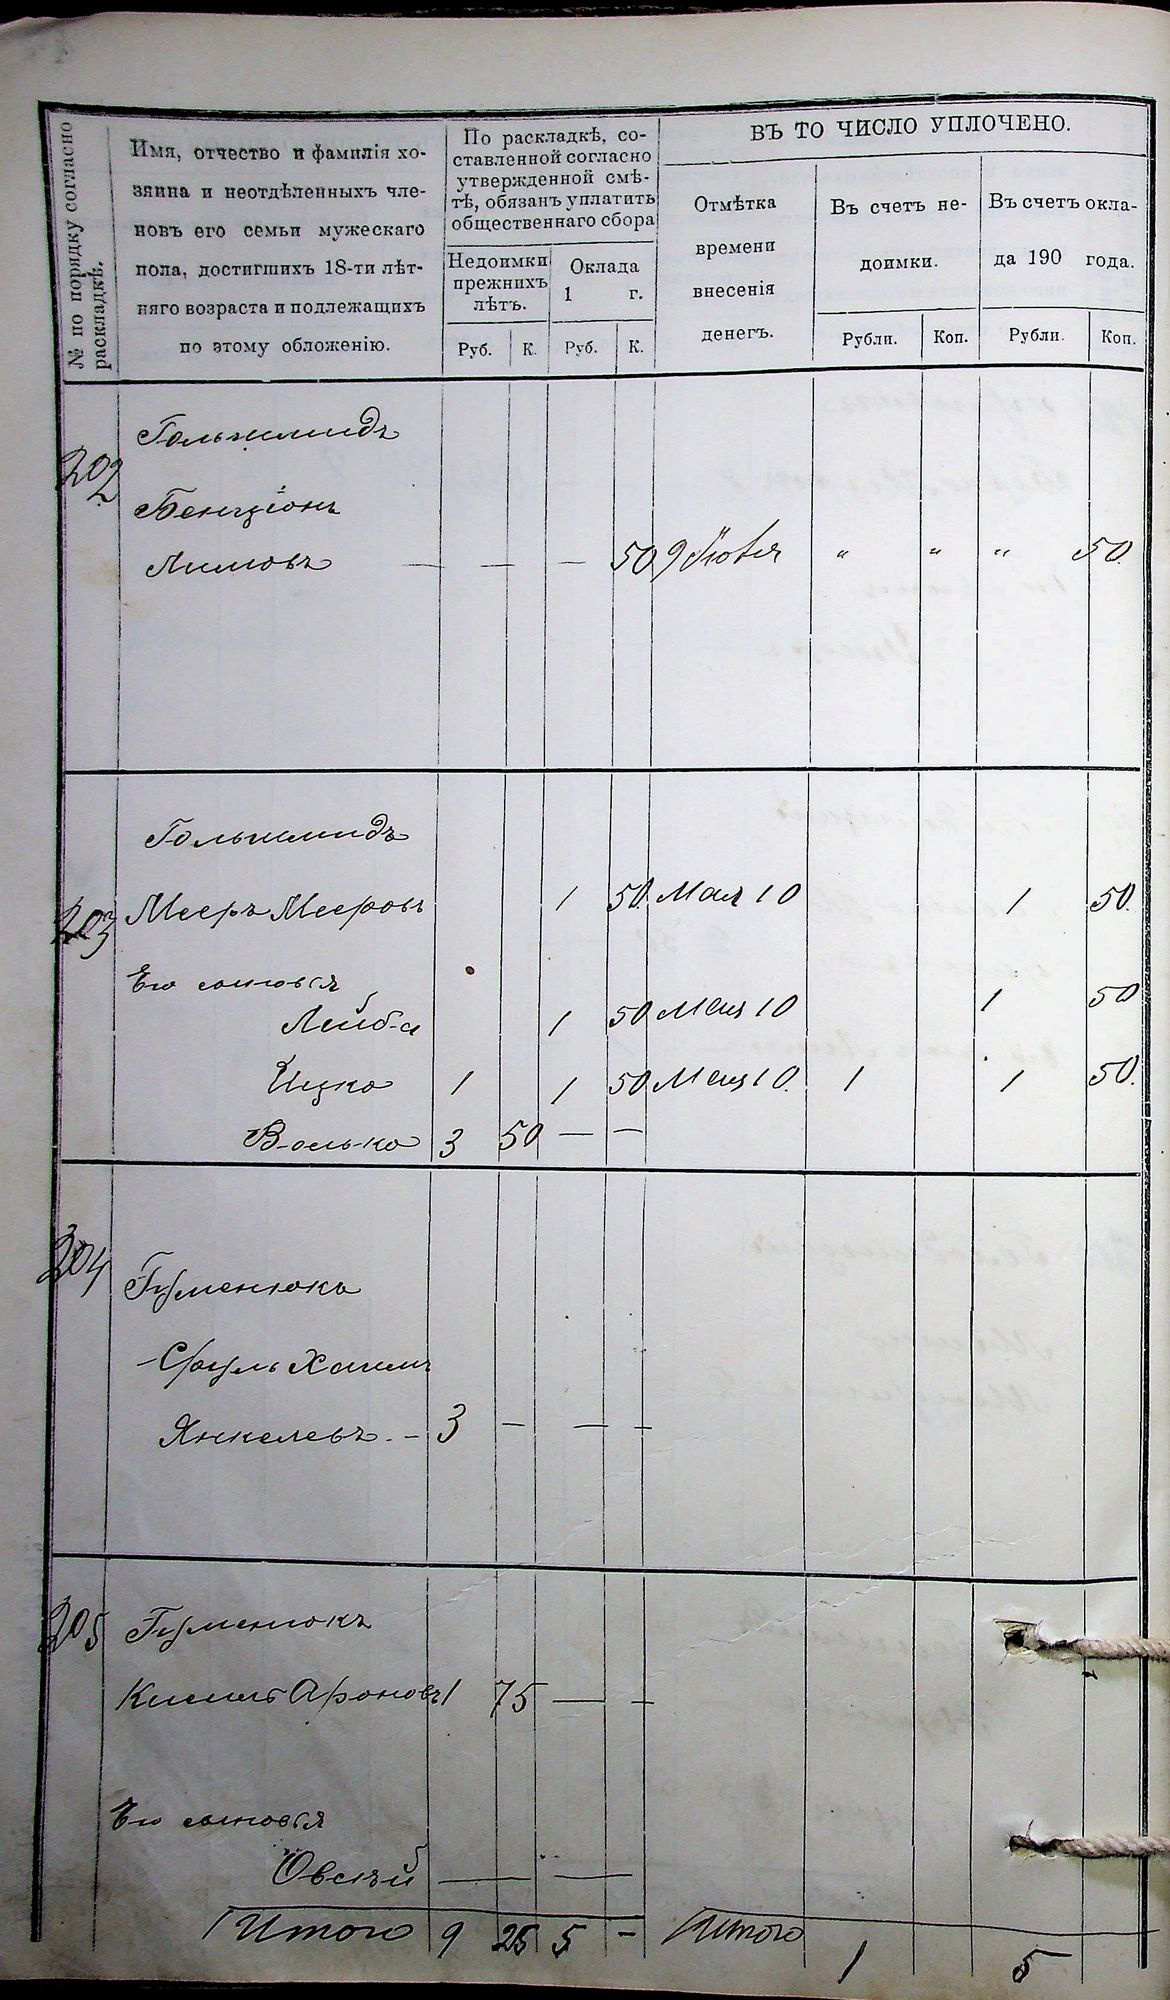 № по порядку согласно
раскладкѣ.
Имя, отчество и фамилія хо-
зяина и неотдѣленныхъ чле-
новъ его семьи мужескаго
пола, достигшихъ 18-ти лѣт-
няго возраста и подлежащихъ
по этому обложенію.
По раскладкѣ, со-
ставленной согласно
утвержденной смѣ-
тѣ, обязанъ уплатить
общественнаго сбора
Недоимки
прежнихъ
лѣтъ.
Оклада
1 г.
Руб. К. Руб. К.
ВЪ ТО ЧИСЛО УПЛОЧЕНО.
Отмѣтка
времени
внесенія
денегъ.
Въ счетъ не-
доимки.
Въ счетъ окла-
да 190 года.
Рубли. Коп. Рубли. Коп.
202
Гольшмидъ
Бенціонъ
— — — 50 9 " " " 50
203
Гольшмидъ
Мееръ Мееровъ 1 50 Мая 10 1 50
Его сыновья
Лейба 1 50 Мая 10 1 50
Ицко 1 1 50 Мая 10 1 1 50
Волько 3 50 — —
204
Гуменюкъ
Сруль Хаимъ
Янкелевъ - 3 — — —
205
Гуменюкъ
Кисиль Ароновъ 1 75 — —
Его сыновья
Овсѣй — — —
Итого 9 25 5 - Итого 1 5